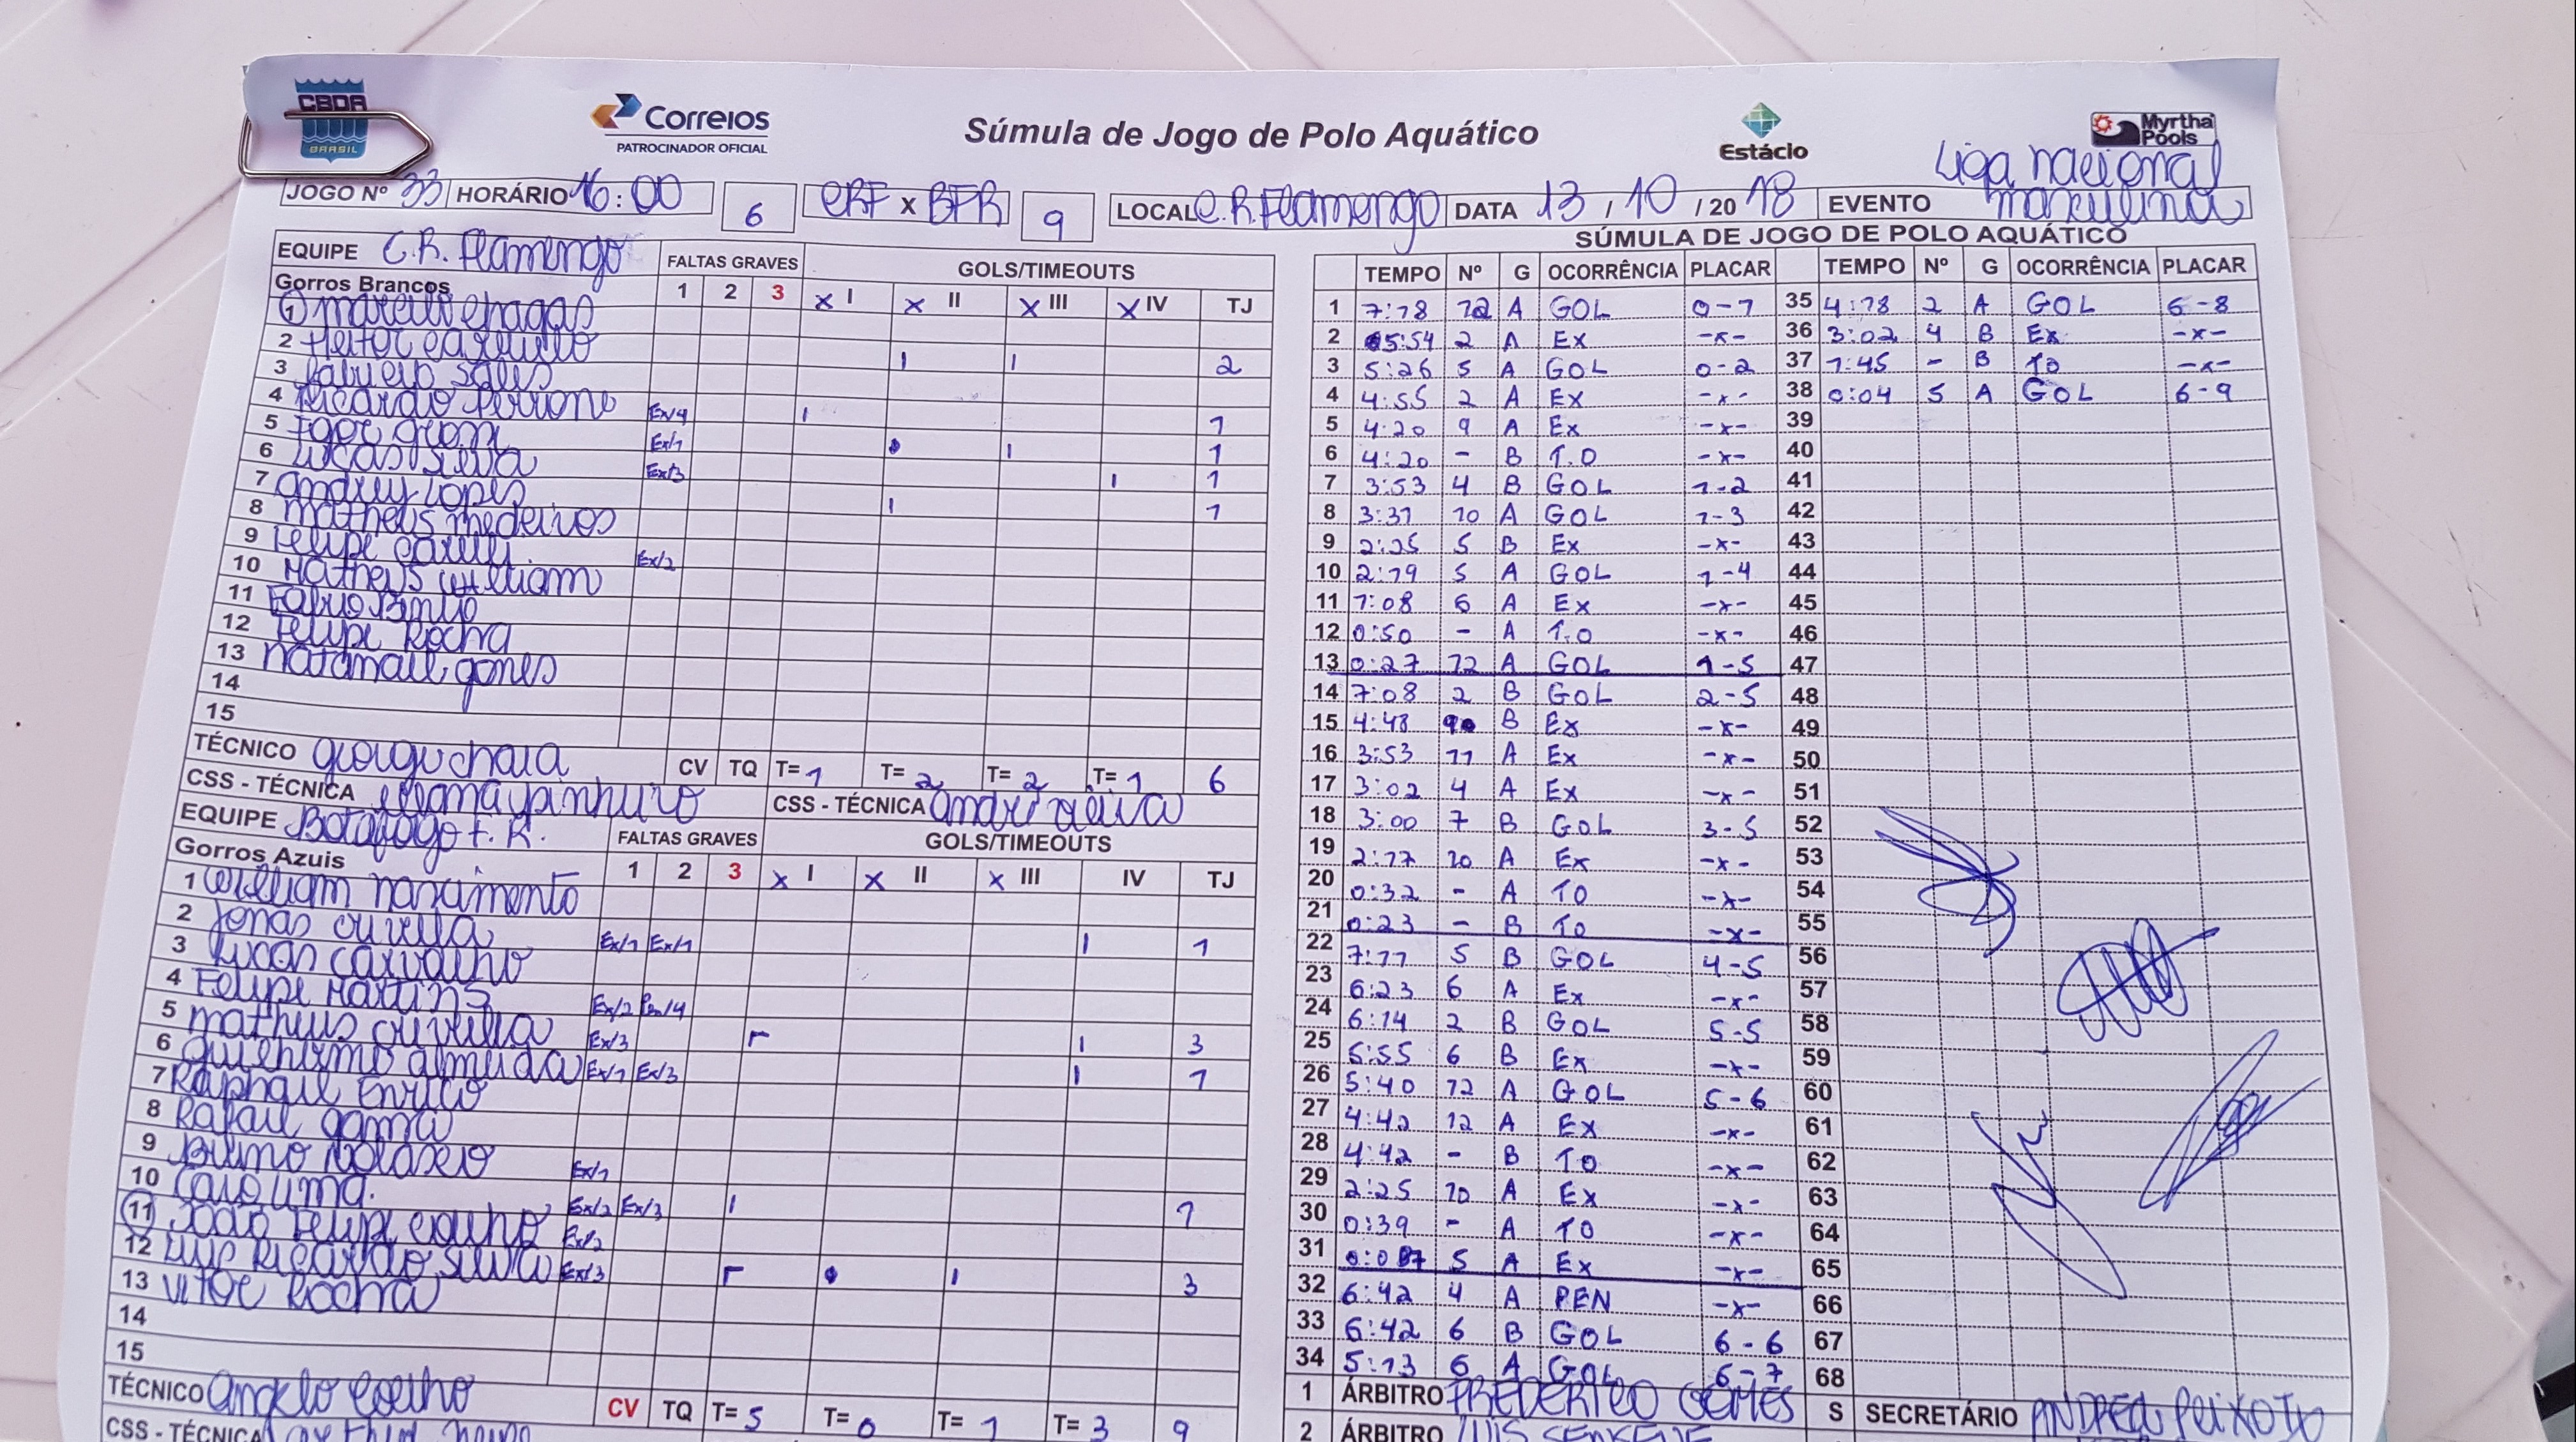 CBDA
BRASIL
Correios
PATROCINADOR OFICIAL
Súmula de Jogo de Polo Aquático
Estácio
Myrtha Pools
Liga nacional
masculina
JOGO Nº 33 HORÁRIO 16:00 6 CRF x BFR 9 LOCAL C.R.Flamengo DATA 13 / 10 / 20 18 EVENTO
EQUIPE C.R. Flamengo FALTAS GRAVES GOLS/TIMEOUTS
Gorros Brancos 1 2 3 x I x II x III x IV TJ
1 Marcelo Chagas
2 Heitor Carrulo | | 2
3 Fabricio Sales
4 Ricardo Perrone Ex/4 | 1
5 Igor Grom Ex/1 | 1
6 Lucas Silva Ex/3 | 1
7 Andrey Lopes | 1
8 Matheus Medeiros
9 Felipe Ex/2
10 Matheus William
11 Fabio
12 Felipe Rocha
13 Natanael Gomes
14
15
TÉCNICO CV TQ T= 1 T= 2 T= 2 T= 1 6
CSS - TÉCNICA CSS - TÉCNICA
EQUIPE Botafogo F. R. FALTAS GRAVES GOLS/TIMEOUTS
Gorros Azuis 1 2 3 x I x II x III IV TJ
1 William Nascimento
2 Jonas Ex/1 Ex/1 | 1
3 Lucas Carvalho
4 Felipe Martins Ex/2 Pen/4
5 Matheus Ex/3 | 3
6 Guilhermo Almeida Ex/1 Ex/3 | 1
7 Raphael Enrico
8 Rafael Gama
9 Bruno Ex/1
10 Caio Lima. Ex/2 Ex/3 | 1
11 João Felipe Coelho Ex/2
12 Luis Ricardo Silva Ex/3 | 3
13 Vitor Rocha
14
15
TÉCNICO Angelo Coelho CV TQ T= 5 T= 0 T= 1 T= 3 9
CSS - TÉCNICA
SÚMULA DE JOGO DE POLO AQUÁTICO
TEMPO Nº G OCORRÊNCIA PLACAR TEMPO Nº G OCORRÊNCIA PLACAR
1 7:18 12 A GOL 0-1 35 4:18 2 A GOL 6-8
2 5:54 2 A Ex -x- 36 3:02 4 B Ex -x-
3 5:26 5 A GOL 0-2 37 1:45 - B TO -x-
4 4:55 2 A Ex -x- 38 0:04 5 A GOL 6-9
5 4:20 9 A Ex -x- 39
6 4:20 - B T.O -x- 40
7 3:53 4 B GOL 1-2 41
8 3:31 10 A GOL 1-3 42
9 2:25 5 B Ex -x- 43
10 2:19 5 A GOL 1-4 44
11 1:08 6 A Ex -x- 45
12 0:50 - A T.O -x- 46
13 0:27 12 A GOL 1-5 47
14 7:08 2 B GOL 2-5 48
15 4:48 9 B Ex -x- 49
16 3:53 11 A Ex -x- 50
17 3:02 4 A Ex -x- 51
18 3:00 7 B GOL 3-5 52
19 2:17 10 A Ex -x- 53
20 0:32 - A TO -x- 54
21 0:23 - B TO -x- 55
22 7:11 5 B GOL 4-5 56
23 6:23 6 A Ex -x- 57
24 6:14 2 B GOL 5-5 58
25 5:55 6 B Ex -x- 59
26 5:40 12 A GOL 5-6 60
27 4:42 12 A Ex -x- 61
28 4:42 - B TO -x- 62
29 2:25 10 A Ex -x- 63
30 0:39 - A TO -x- 64
31 5 A Ex -x- 65
32 6:42 4 A PEN -x- 66
33 6:42 6 B GOL 6-6 67
34 5:13 6 A GOL 6-7 68
1 ÁRBITRO S SECRETÁRIO ANDREA PEIXOTO
2 ÁRBITRO LUIS